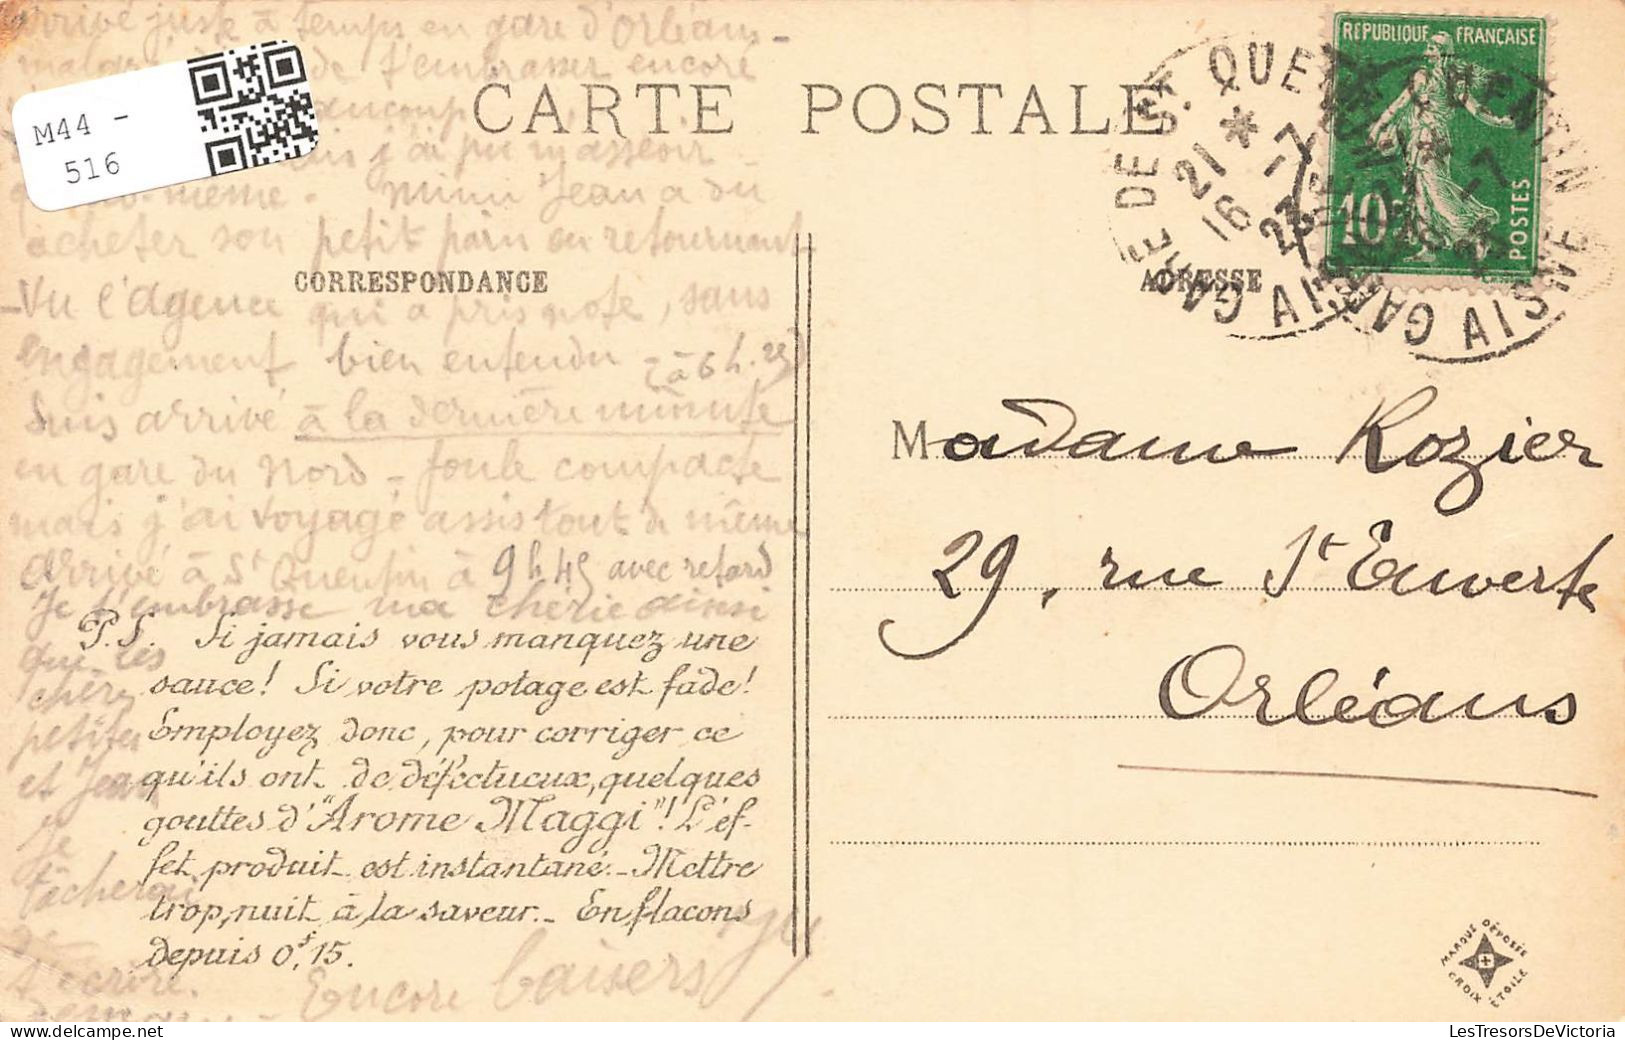 arrivé juste à temps en gare d'Orléans -
de t'embrasser encore
beaucoup
j'ai pu m'asseoir -
même. Mimi Jean a du
acheter son petit pain en retournant
- Vu l'agence qui a pris note, sans
engagement bien entendu - à 6 h. 25
Suis arrivé à la dernière minute
en gare du Nord - foule compacte
mais j'ai voyagé assis tout de même
Arrivé à St Quentin à 9 h 45 avec retard
Je t'embrasse ma chérie ainsi
que les
chères
petites
et Jean
Je
tâcherai
t'écrire
demain
Encore baisers
M44 -
516
CARTE POSTALE
CORRESPONDANCE
P.S. Si jamais vous manquez une
sauce! Si votre potage est fade!
Employez donc, pour corriger ce
qu'ils ont de défectueux, quelques
gouttes d'"Arome Maggi"! L'ef-
fet produit est instantané. - Mettre
trop, nuit à la saveur. - En flacons
depuis 0f,15.
ADRESSE
RÉPUBLIQUE FRANÇAISE
10c
POSTES
GARE DE ST QUENTIN
21 * -7
16 23
AISNE
GARE DE ST QUENTIN
21 * -7
16 23
AISNE
Madame Rozier
29, rue St Euverte
Orléans
MARQUE DÉPOSÉE
CROIX ÉTOILE
LesTresorsDeVictoria